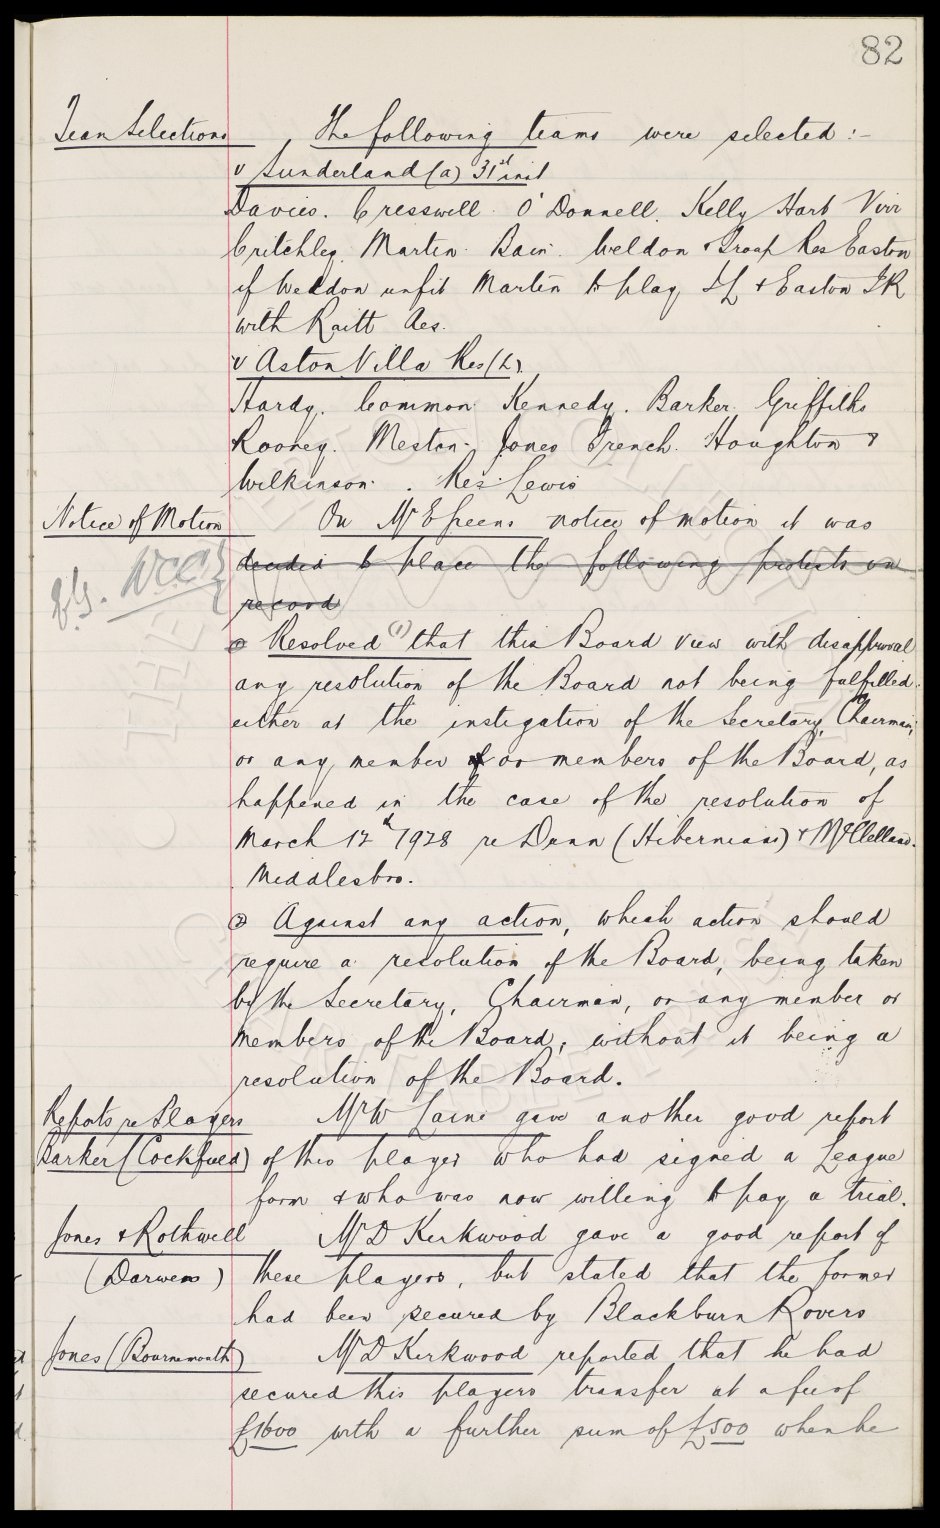 82
Team Selections The following teams were selected :-
v Sunderland (a) 31st inst
Davies. Cresswell. O'Donnell. Kelly Hart Virr
Critchley. Martin. Bain. Weldon & Troup Res Easton
if Weldon unfit Martin to play IL & Easton IR
with Raitt Res.
v Aston Villa Res (h).
Hardy. Common Kennedy. Barker. Griffiths
Rooney. Meston. Jones French. Houghton &
Wilkinson. Res: Lewis
Notice of Motion On Mr E Greens notice of motion it was
decided to place the following protests on
record
① Resolved (1) that this Board view with disapproval
any resolution of the Board not being fulfilled.
either at the instigation of the Secretary, Chairman,
or any member or members of the Board, as
happened in the case of the resolution of
March 12th 1928 re Dunn (Hibernians) & McClelland.
Middlesbro.
② Against any action, which action should
require a resolution of the Board, being taken
by the Secretary, Chairman, or any member or
members of the Board, without it being a
resolution of the Board.
Reports re Players Mr W Laine gave another good report
Barker (Cockfield) of this player who had signed a League
form & who was now willing to pay a trial.
Jones & Rothwell Mr D Kirkwood gave a good report of
(Darwen) these players, but stated that the former
had been secured by Blackburn Rovers
Jones (Bournemouth) Mr D Kirkwood reported that he had
secured this players transfer at a fee of
£1600 with a further sum of £500 when he